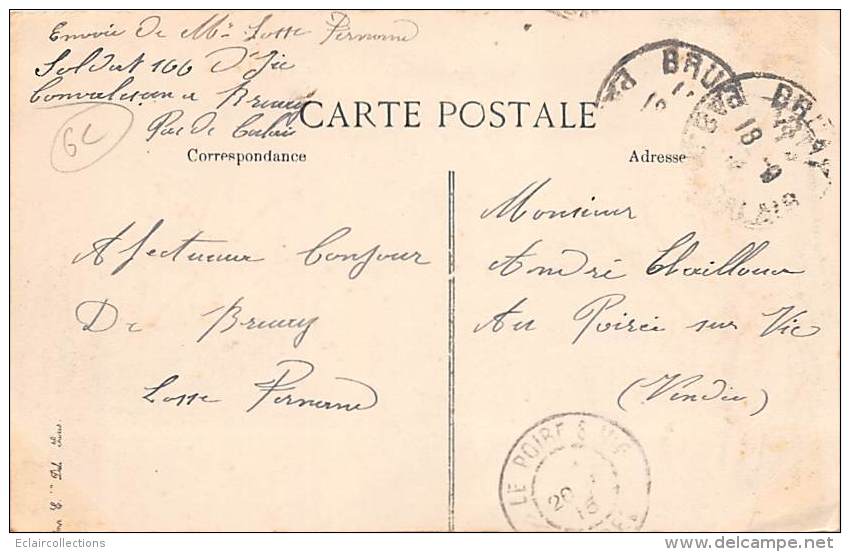 Envoie De Mr Losse Fernand
Soldat 166 D'Ie
Convalescence Bruay
Pas de Calais
62
CARTE POSTALE
Correspondance
Adresse
BRUAY
BRUAY
18
18
PAS DE CALAIS
Afectueux Bonjour
De Bruay
Losse Fernand
Monsieur
André Chaillou
Au Poiré sur Vie
(Vendée)
LE POIRE S VIE
20
15
Eclaircollections
www.delcampe.net